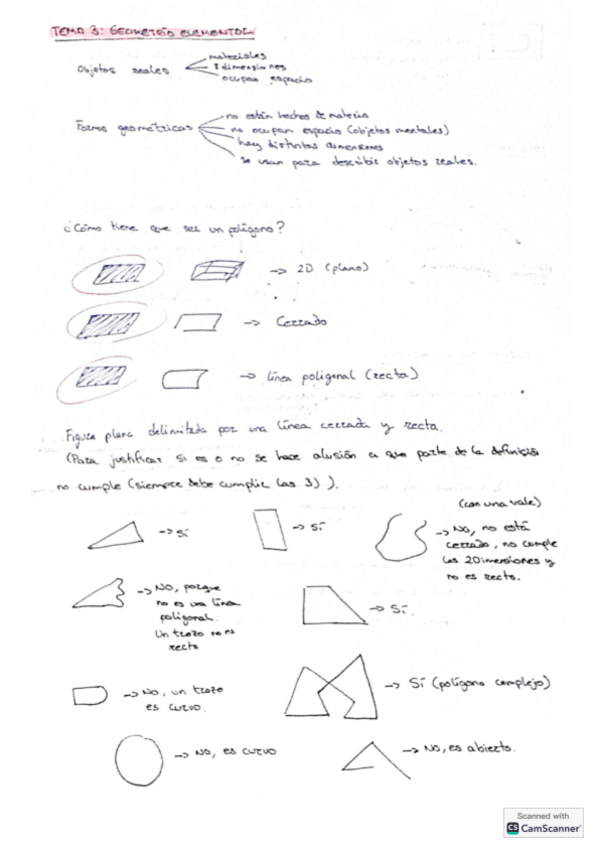 TEMA 3: GEOMETRÍA ELEMENTAL
materiales
Objetos reales 3 dimensiones
ocupan espacio
no están hechos de materia
Formas geométricas no ocupan espacio (objetos mentales)
hay distintas dimensiones
se usan para describir objetos reales.
¿Cómo tiene que ser un polígono?
-> 2D (plano)
-> Cerrado
-> línea poligonal (recta)
Figura plana delimitada por una línea cerrada y recta.
(Para justificar si es o no se hace alusión a que parte de la definición
no cumple (siempre debe cumplir las 3) ).
(con una vale)
-> Sí
-> Sí
-> No, no está
cerrado, no cumple
las 2 dimensiones y
no es recto.
-> NO, porque
no es una línea
poligonal.
Un trazo no es
recto
-> Sí.
-> No, un trazo
es curvo.
-> Sí (polígono complejo)
-> No, es curvo
-> No, es abierto.
Scanned with
CS CamScanner